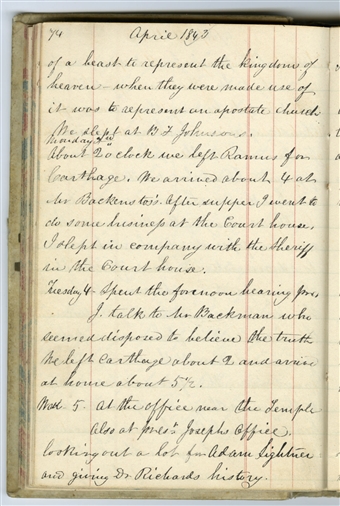 74 April 1843
of a beast to represent the kingdom of
heaven - when they were made use of
it was to represent an apostate church
We slept at B F Johnsons.
Monday 3rd
About 2 oclock we left Ramus for
Carthage. We arrived about 4 at
Mr Backenstos's. After supper I went to
do some business at the Court house,
I slept in company with the Sheriff
in the Court house.
Tuesday 4 - Spent the forenoon hearing pres.
J. talk to Mr Backman who
seemed disposed to believe the truth
We left Carthage about 2 and arrive
at home about 5½.
Wed 5. At the office near the Temple
also at prest Josephs office.
looking out a lot for Adam Lightner
and giving Dr Richards history.